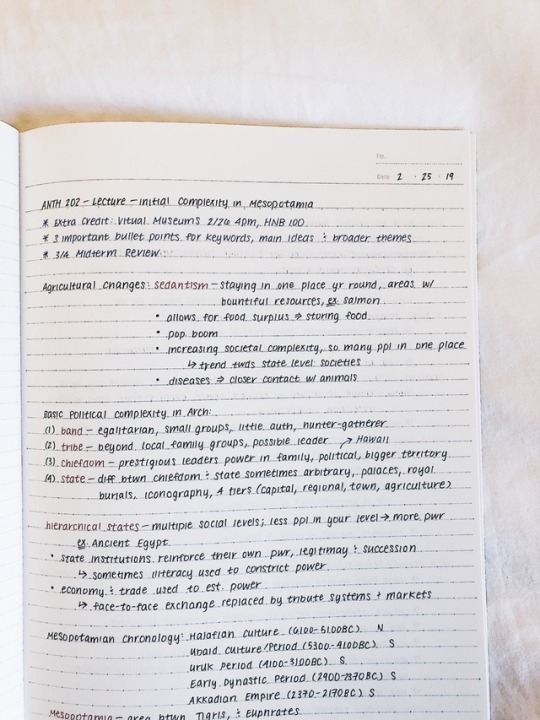 No.
Date 2 · 25 · 19
ANTH 202 – Lecture – initial complexity in Mesopotamia
* Extra Credit: Vitual Museums 2/26 4pm, HNB 100
* 3 important bullet points for keywords, main ideas & broader themes
* 3/4 Midterm Review
Agricultural Changes: sedantism – staying in one place yr round, areas w/
bountiful resources, ex salmon
• allows for food surplus → storing food
• pop boom
• increasing societal complexity, so many ppl in one place
↳ trend twds state level societies
• diseases → closer contact w/ animals
Basic Political complexity in Arch:
(1) band – egalitarian, small groups, little auth, hunter-gatherer
(2) tribe – beyond local family groups, possible leader ↗ Hawaii
(3) chiefdom – prestigious leaders power in family, political, bigger territory
(4) state – diff btwn chiefdom & state sometimes arbitrary, palaces, royal
burials, iconography, 4 tiers (capital, regional, town, agriculture)
hierarchical states – multiple social levels; less ppl in your level → more pwr
ex Ancient Egypt
• state institutions reinforce their own pwr, legitimay & succession
↳ sometimes literacy used to constrict power
• economy & trade used to est. power
↳ face-to-face exchange replaced by tribute systems + markets
Mesopotamian Chronology: Halafian culture (6100-5100BC) N
Ubaid Culture/Period (5300-4100BC) S
Uruk Period (4100-3100BC) S
Early Dynastic Period (2900-2370BC) S
Akkadian Empire (2370-2170BC) S
Mesopotamia – area btwn Tigris, & Euphrates